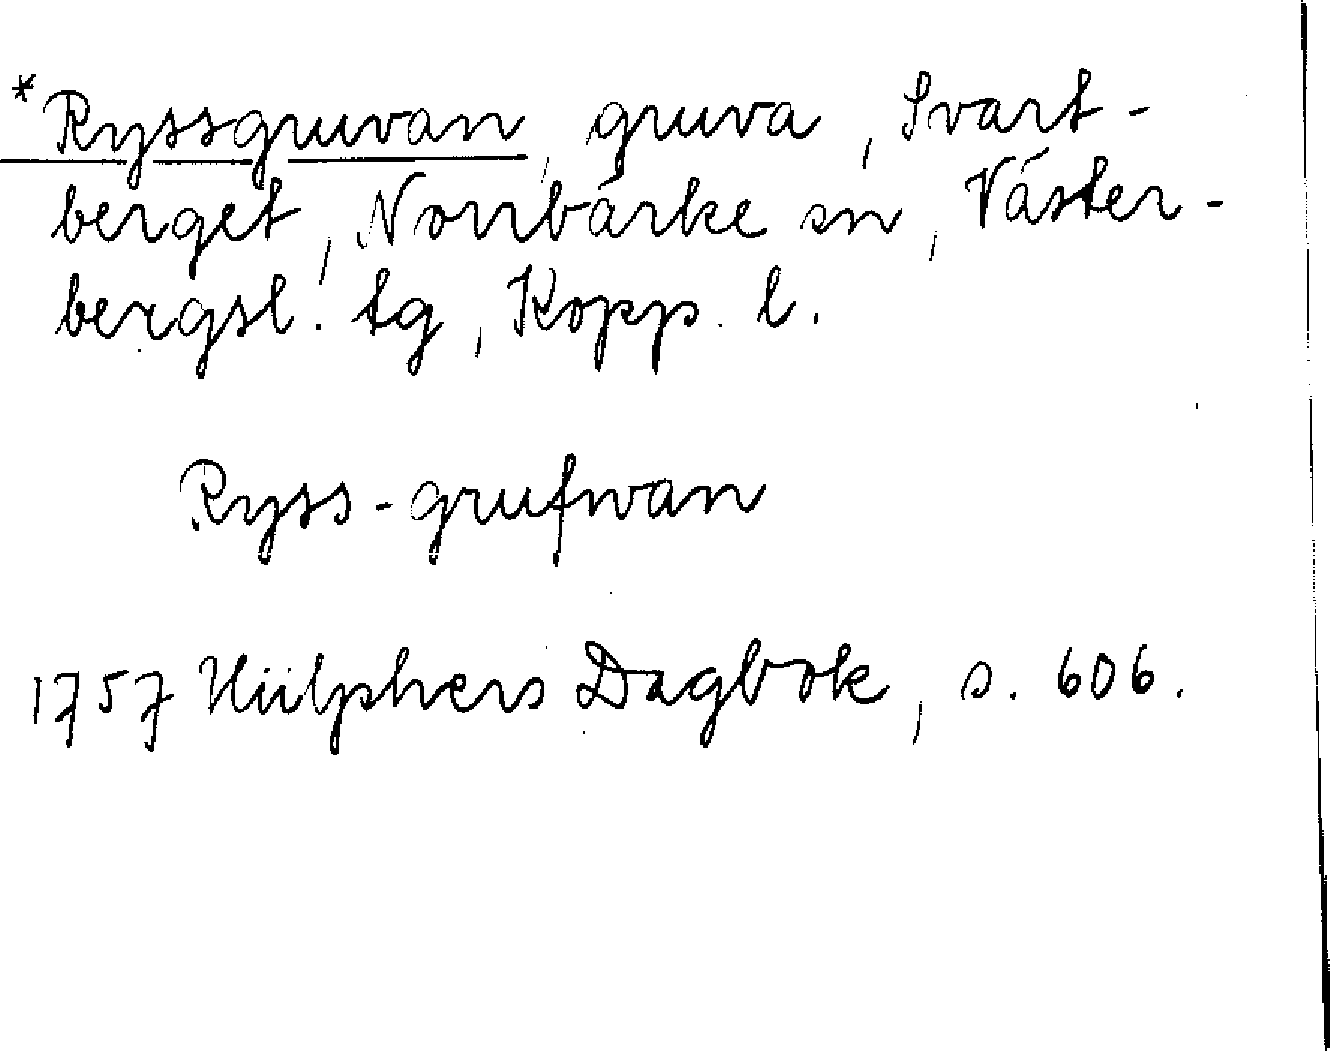 *Ryssgruvan, gruva, Svart-
berget, Norrbärke sn, Väster-
bergsl. tg, Kopp. l.
Ryss-grufwan
1757 Hülphers Dagbok, s. 606.